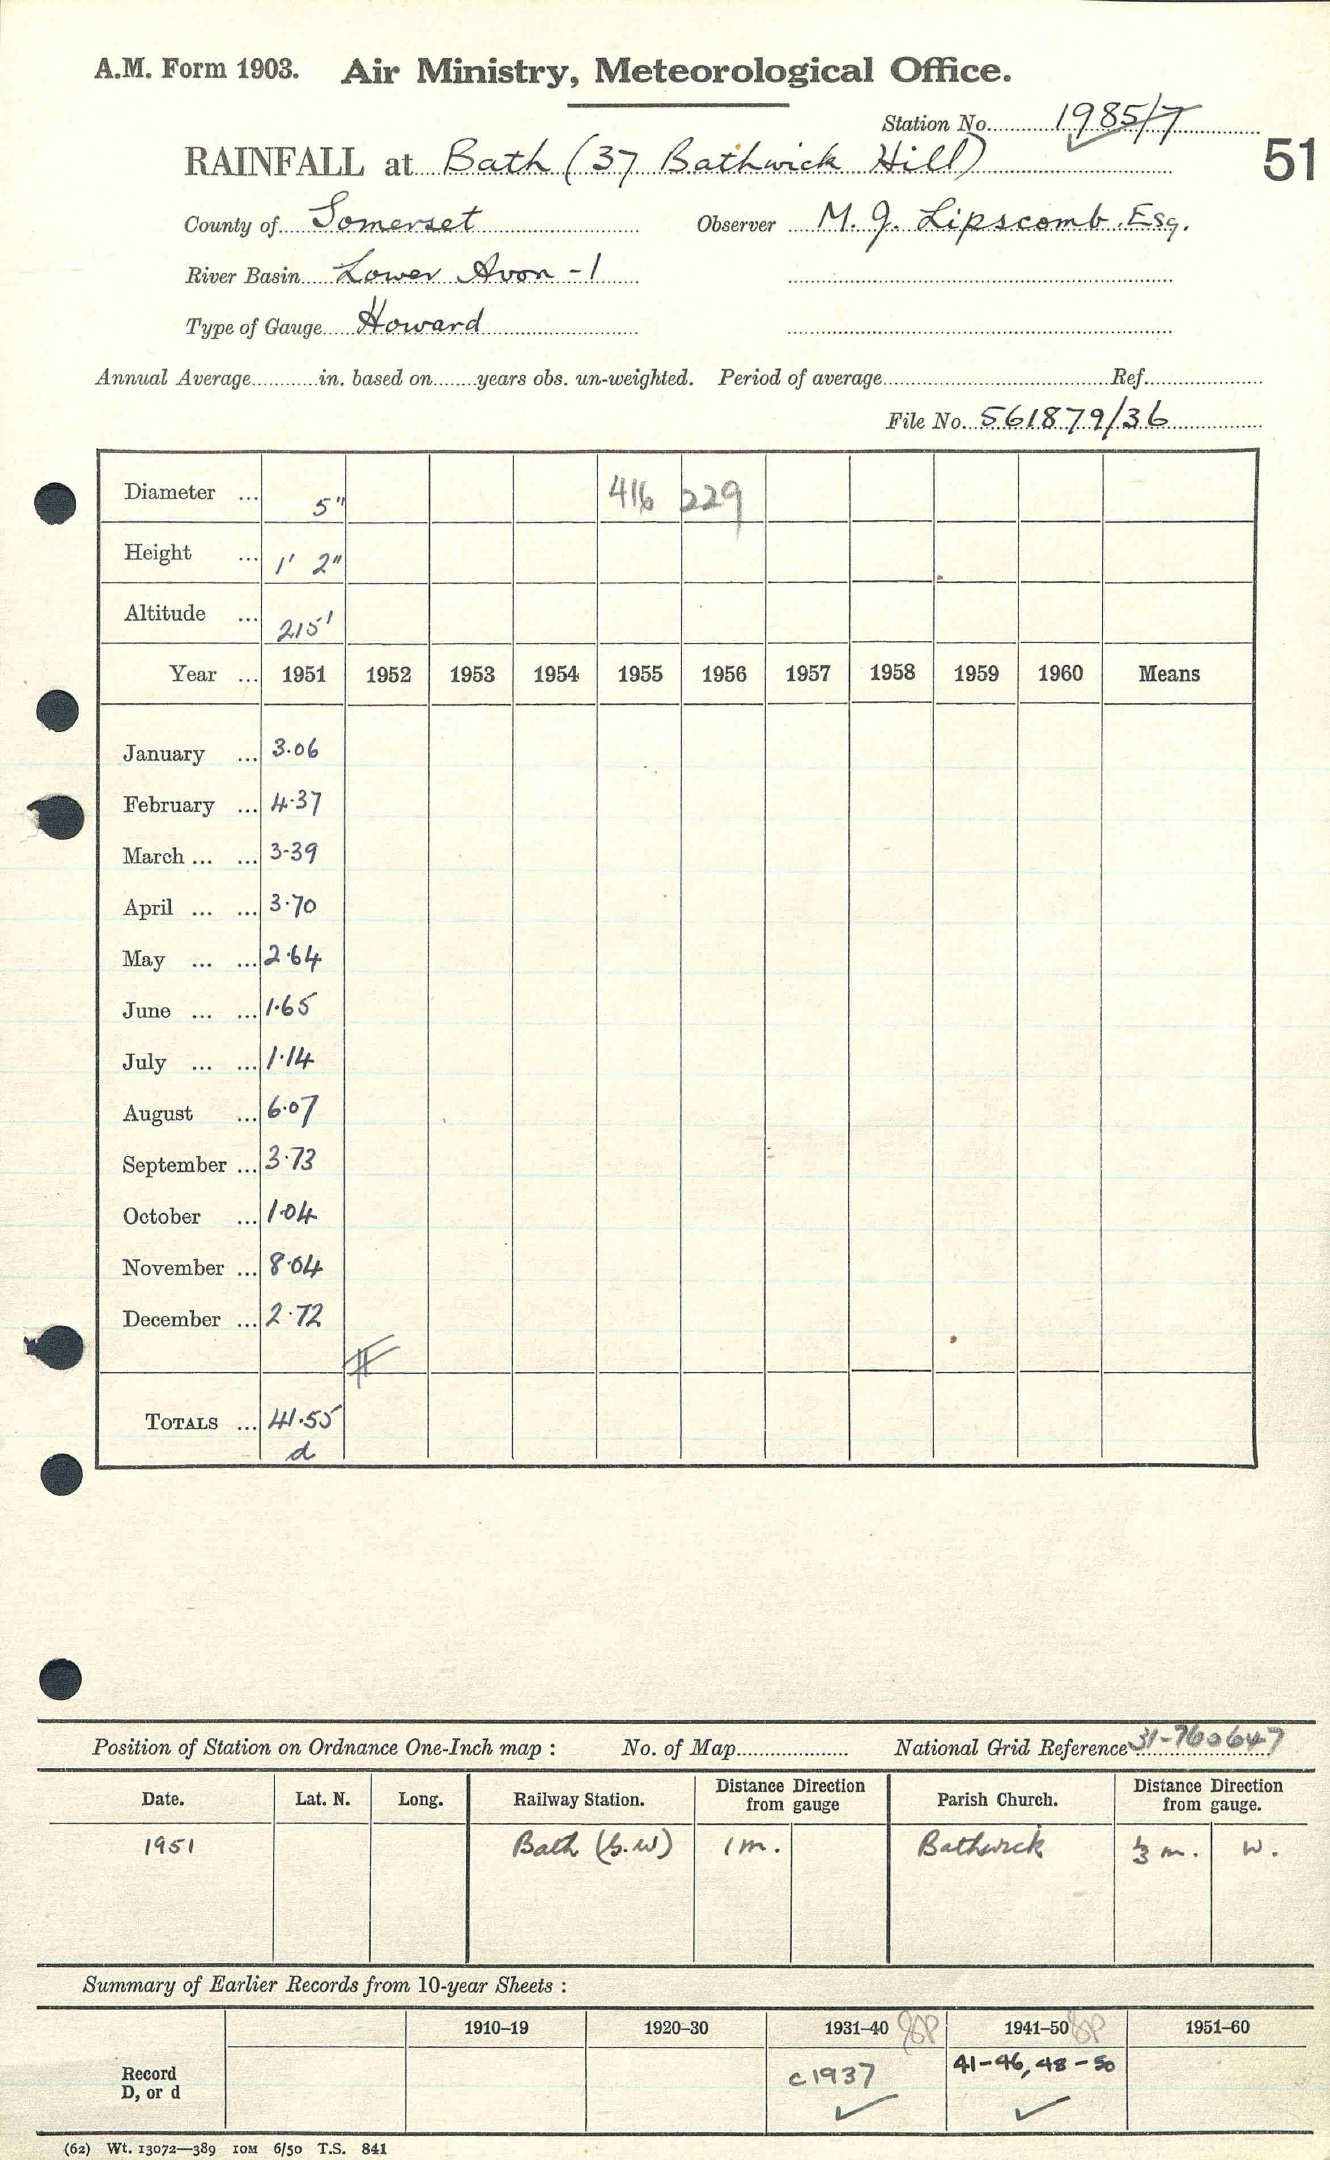 A.M. Form 1903. Air Ministry, Meteorological Office.
Station No. 1985/7
51
RAINFALL at Bath (37 Bathwick Hill)
County of Somerset Observer M. J. Lipscomb. Esq.
River Basin Lower Avon - 1
Type of Gauge Howard
Annual Average............in. based on........years obs. un-weighted. Period of average............Ref............
File No. 561879/36
Diameter ... 5" 416 229
Height ... 1' 2"
Altitude ... 215'
Year ... 1951 1952 1953 1954 1955 1956 1957 1958 1959 1960 Means
January ... 3.06
February ... 4.37
March ... ... 3.39
April ... ... 3.70
May ... ... 2.64
June ... ... 1.65
July ... ... 1.14
August ... 6.07
September ... 3.73
October ... 1.04
November ... 8.04
December ... 2.72
TOTALS ... 41.55
d
Position of Station on Ordnance One-Inch map : No. of Map............ National Grid Reference 31-760647
Date. Lat. N. Long. Railway Station. Distance Direction from gauge Parish Church. Distance Direction from gauge.
1951 Bath (G.W) 1 m. Bathwick 1/3 m. W.
Summary of Earlier Records from 10-year Sheets :
1910–19 1920–30 1931–40 1941–50 1951–60
Record
D, or d
c1937 41-46, 48-50
(62) Wt. 13072—389 10M 6/50 T.S. 841